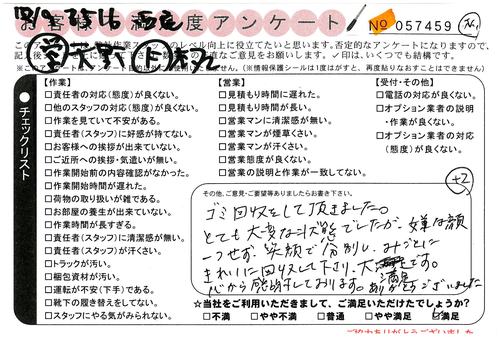 お客様満足度アンケート
No 057459
【作業】
□責任者の対応(態度)が良くない。
□他のスタッフの対応(態度)が良くない。
□作業を見ていて不安がある。
□責任者(スタッフ)に好感が持てない。
□お客様への挨拶が出来ていない。
□ご近所への挨拶・気遣いが無い。
□作業開始前の内容確認がなかった。
□作業開始時間が遅れた。
□荷物の取り扱いが雑である。
□お部屋の養生が出来ていない。
□作業時間が長すぎる。
□責任者(スタッフ)に清潔感が無い。
□責任者(スタッフ)が汗くさい。
□トラックが汚い。
□梱包資材が汚い。
□運転が不安(下手)である。
□靴下の履き替えをしてない。
□スタッフにやる気がみられない。
●チェックリスト
【営業】
□見積もりが時間に遅れた。
□見積もり時間が長い。
□営業マンに清潔感が無い。
□営業マンが煙草くさい。
□営業マンが汗くさい。
□営業態度が良くない。
□営業の説明と作業が一致してない。
【受付・その他】
□電話の対応が良くない。
□オプション業者の説明
・作業が良くない。
□オプション業者の対応
(態度)が良くない。
+2
その他、ご意見・ご要望等ありましたらお書き下さい。
ゴミ回収をして頂きました。
とても大変な状態でしたが、嫌な顔
一つせず、笑顔で分別し、みごとに
きれいに回収して下さり、大満足です。
心から感謝しております。ありがとうございました
☆当社をご利用いただきまして、ご満足いただけたでしょうか?
□不満 □やや不満 □普通 □やや満足 ☑満足
ご協力ありがとうございました